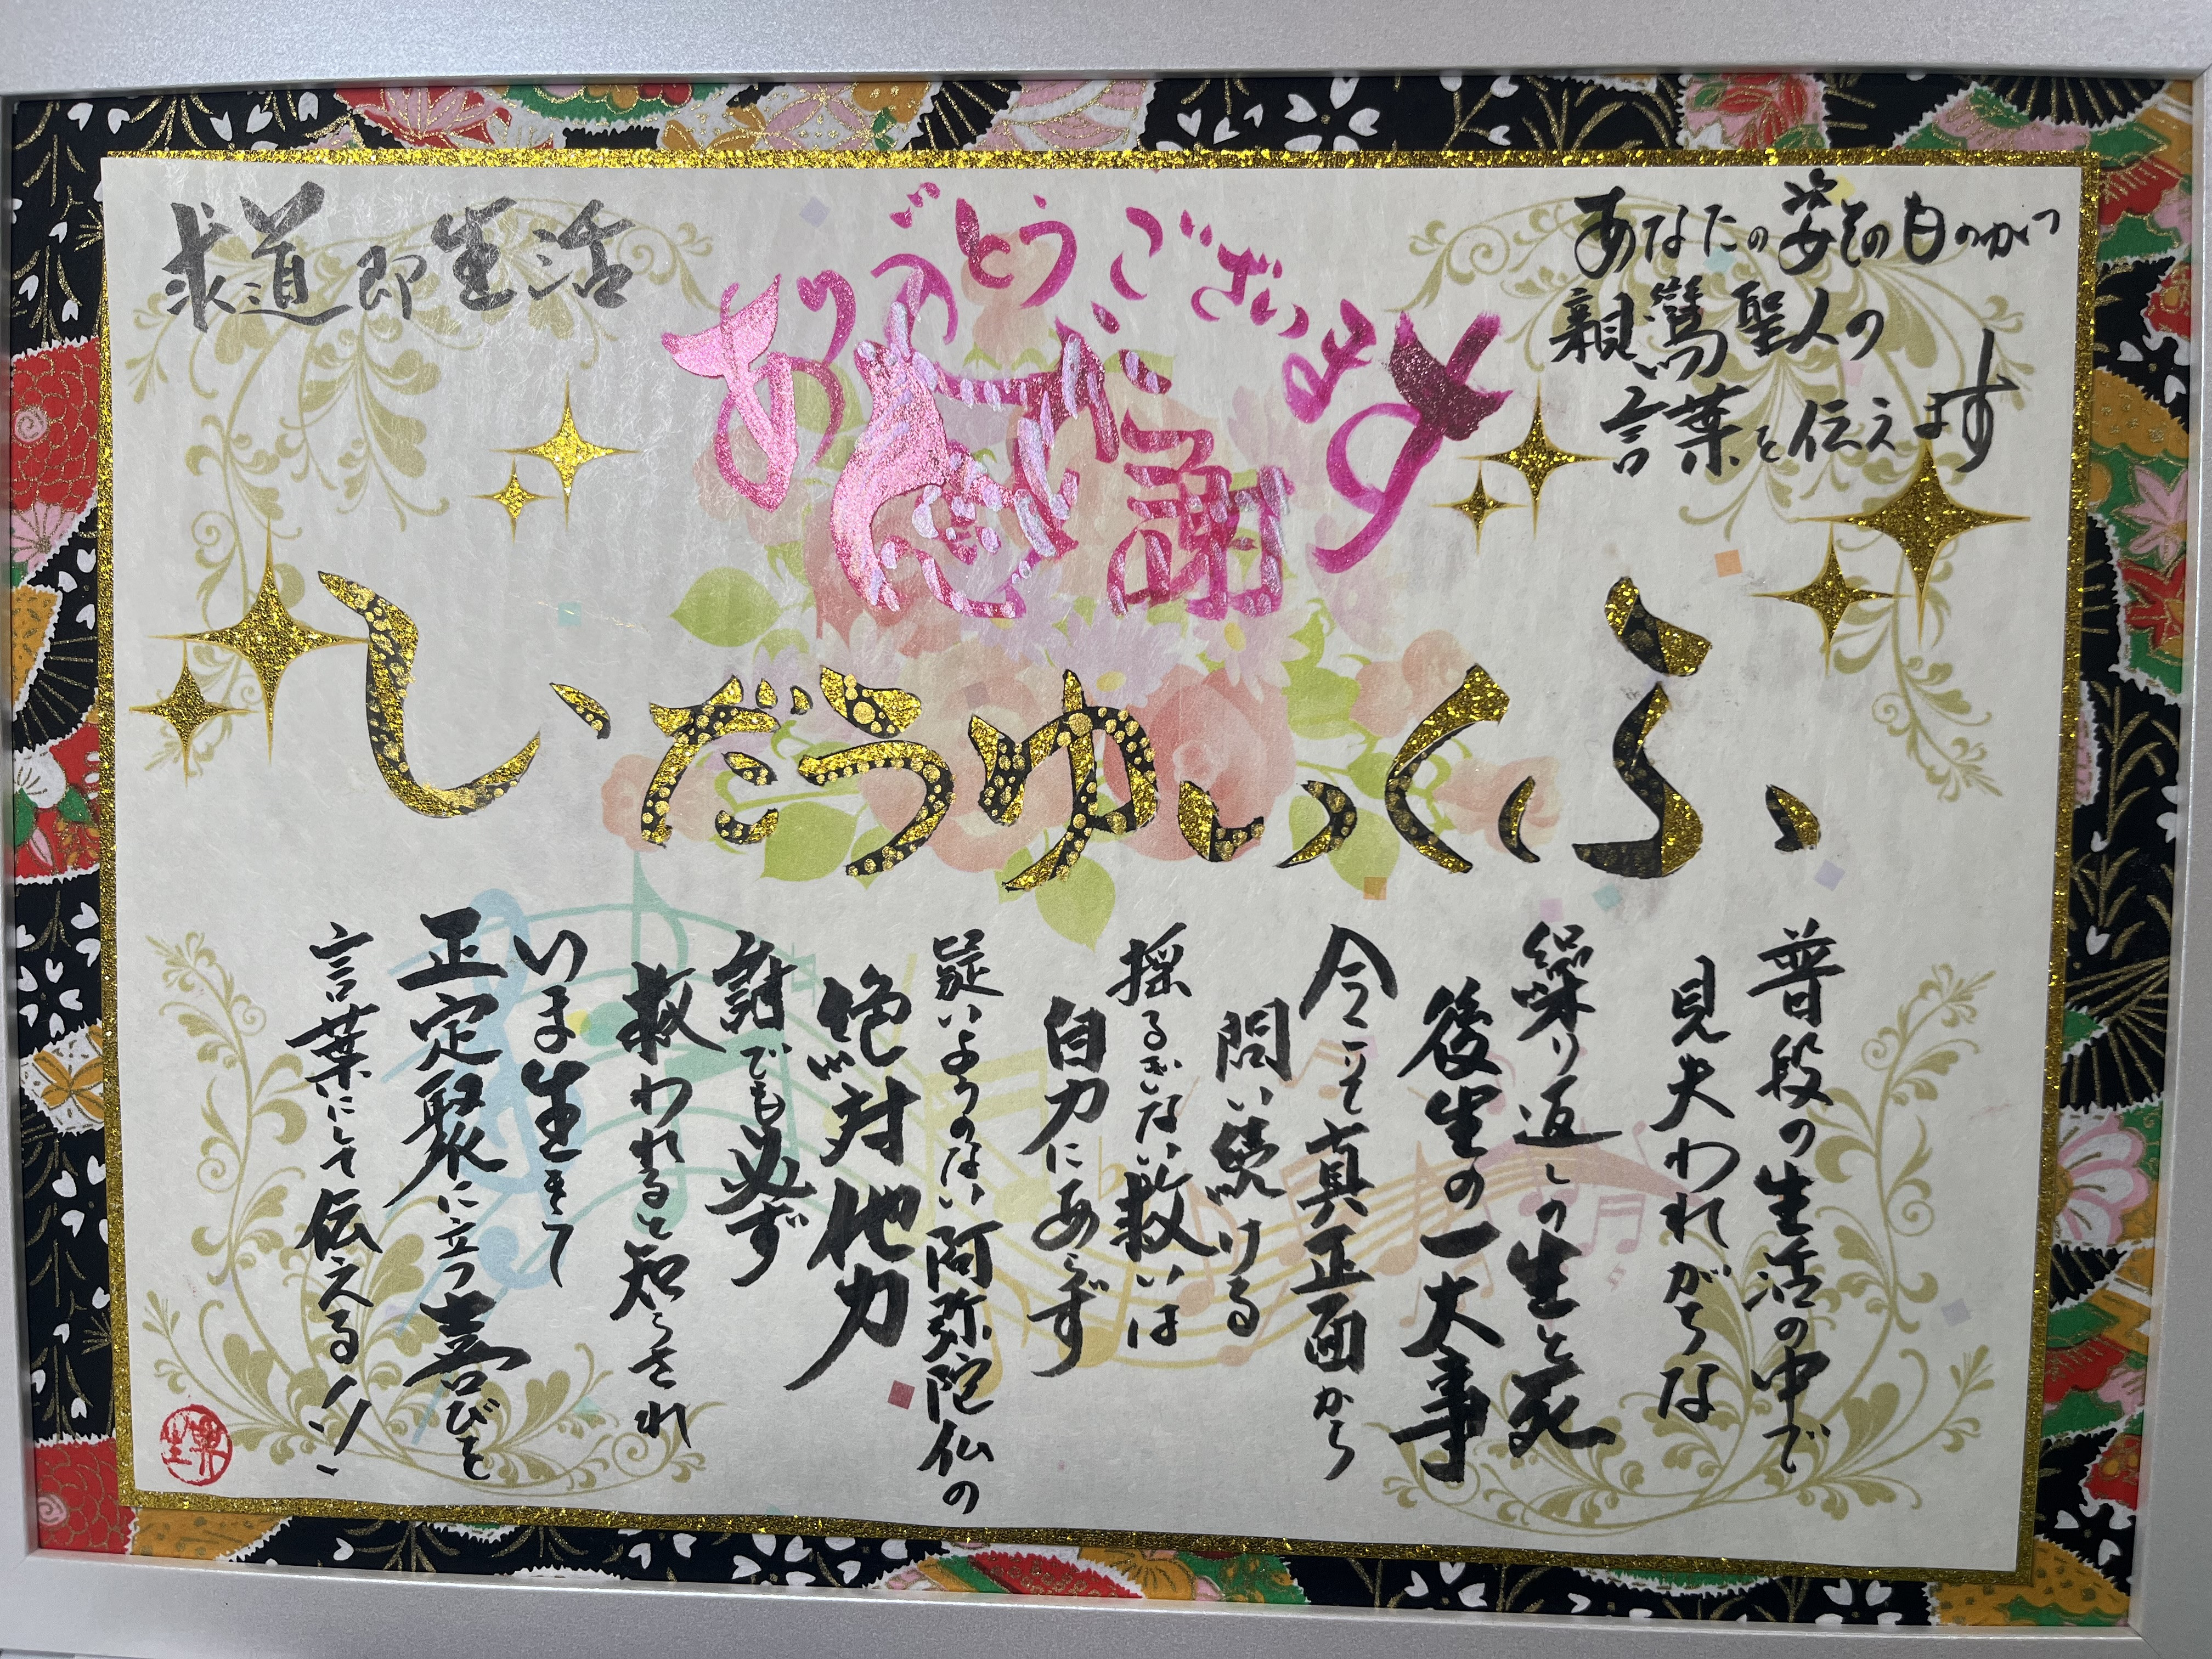 求道即生活
ありがとうございます
感謝
あなたの姿そのものが
親鸞聖人の
言葉を伝えます
ふくいゆうだいし
普段の生活の中で
見失われがちな
繰り返しの生と死
後生の一大事
今こそ真正面から
問い続ける
揺るぎない救いは
自力にあらず
疑いようのない阿弥陀仏の
絶対他力
誰でも必ず
救われると知らされ
いま生きて
正定聚に立つ喜びを
言葉にして伝える!!